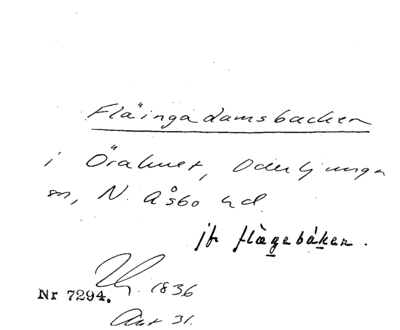 Fläingadamsbacken
i Örahuset, Oderljunga
sn, N. Åsbo hd.
jfr flægebåken.
1836
Nr 7294.
31.